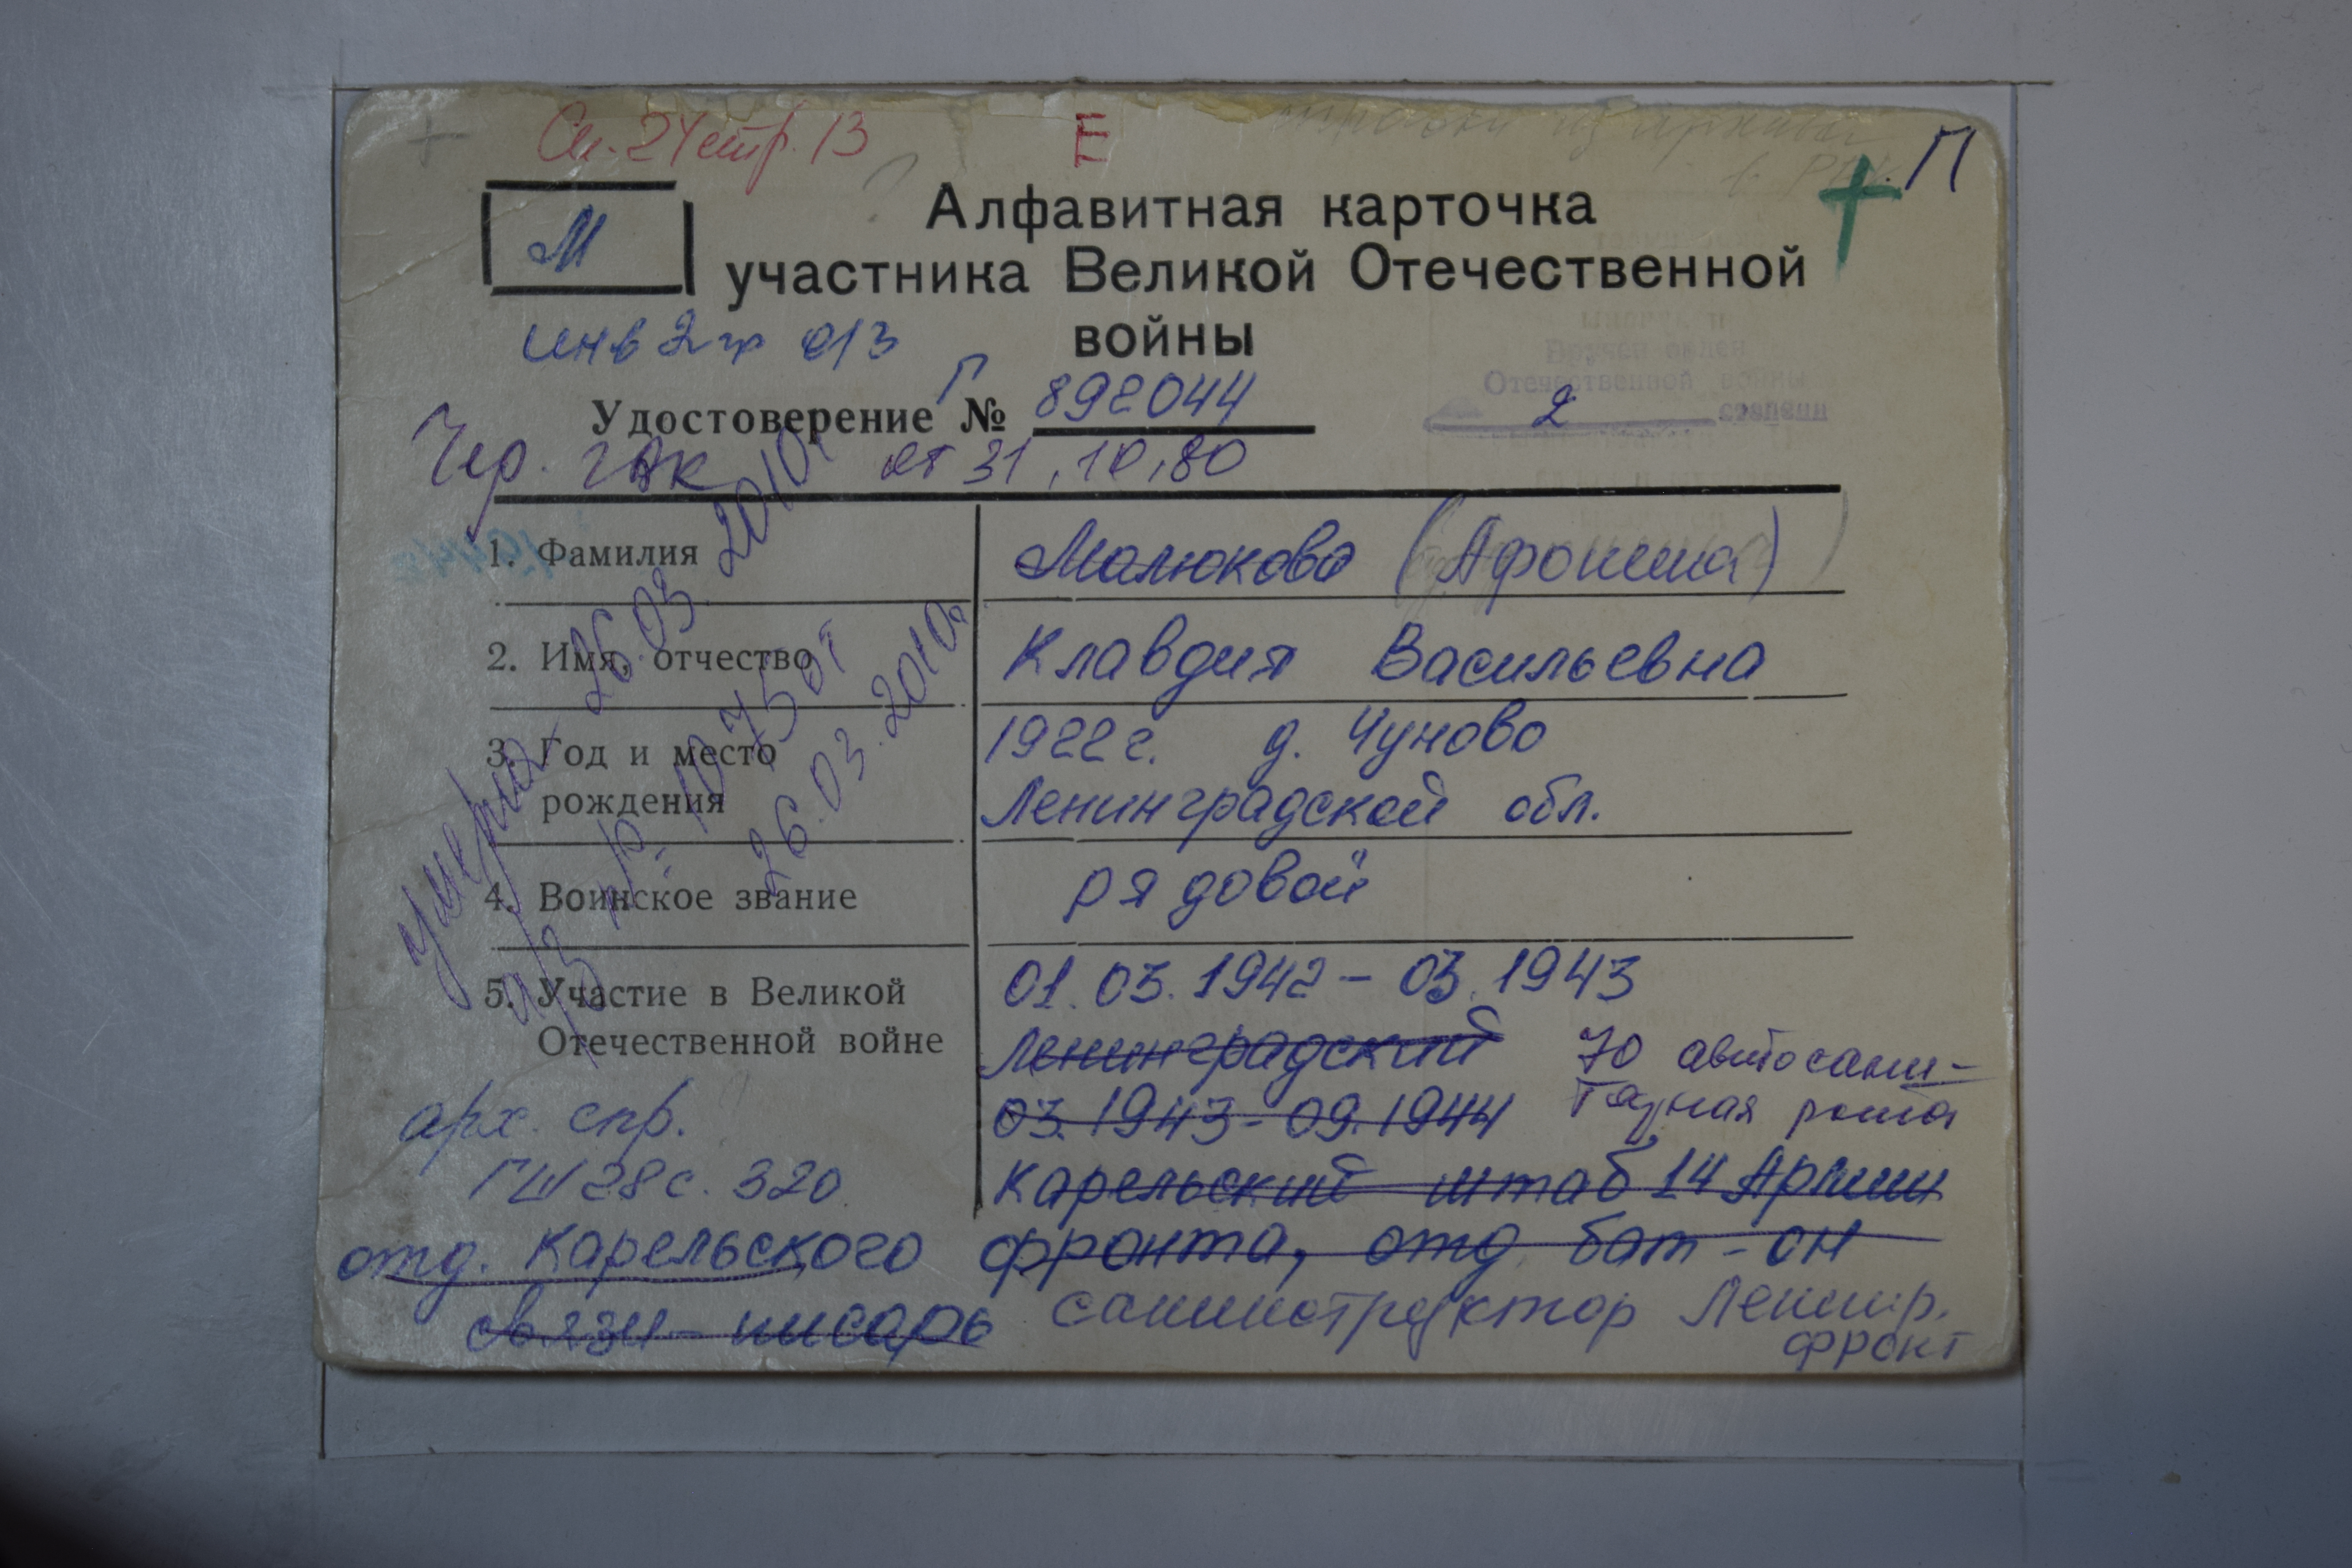 Сп. 24 стр. 13 Е П
М
Алфавитная карточка
участника Великой Отечественной
войны
инв 2 гр о/з
Удостоверение Г № 892044
Вручен орден
Отечественной войны
2 степени
Чер. гвк от 31.10.80
1. Фамилия Малюкова (Афонина)
2. Имя, отчество Клавдия Васильевна
3. Год и место рождения 1922 г. д. Чуново
Ленинградской обл.
4. Воинское звание рядовой
5. Участие в Великой Отечественной войне 01.03.1942 – 03.1943
Ленинградский 70 автосани-
тарная рота
03.1943 - 09.1944
Карельский штаб 14 Армии
арх. спр.
ГШ 28 с. 320
отд. Карельского фронта, отд. бат-он
связи – писарь санинструктор Ленингр.
фронт
умерла 26.03.2010г
а/з № 1075 от
26.03.2010г